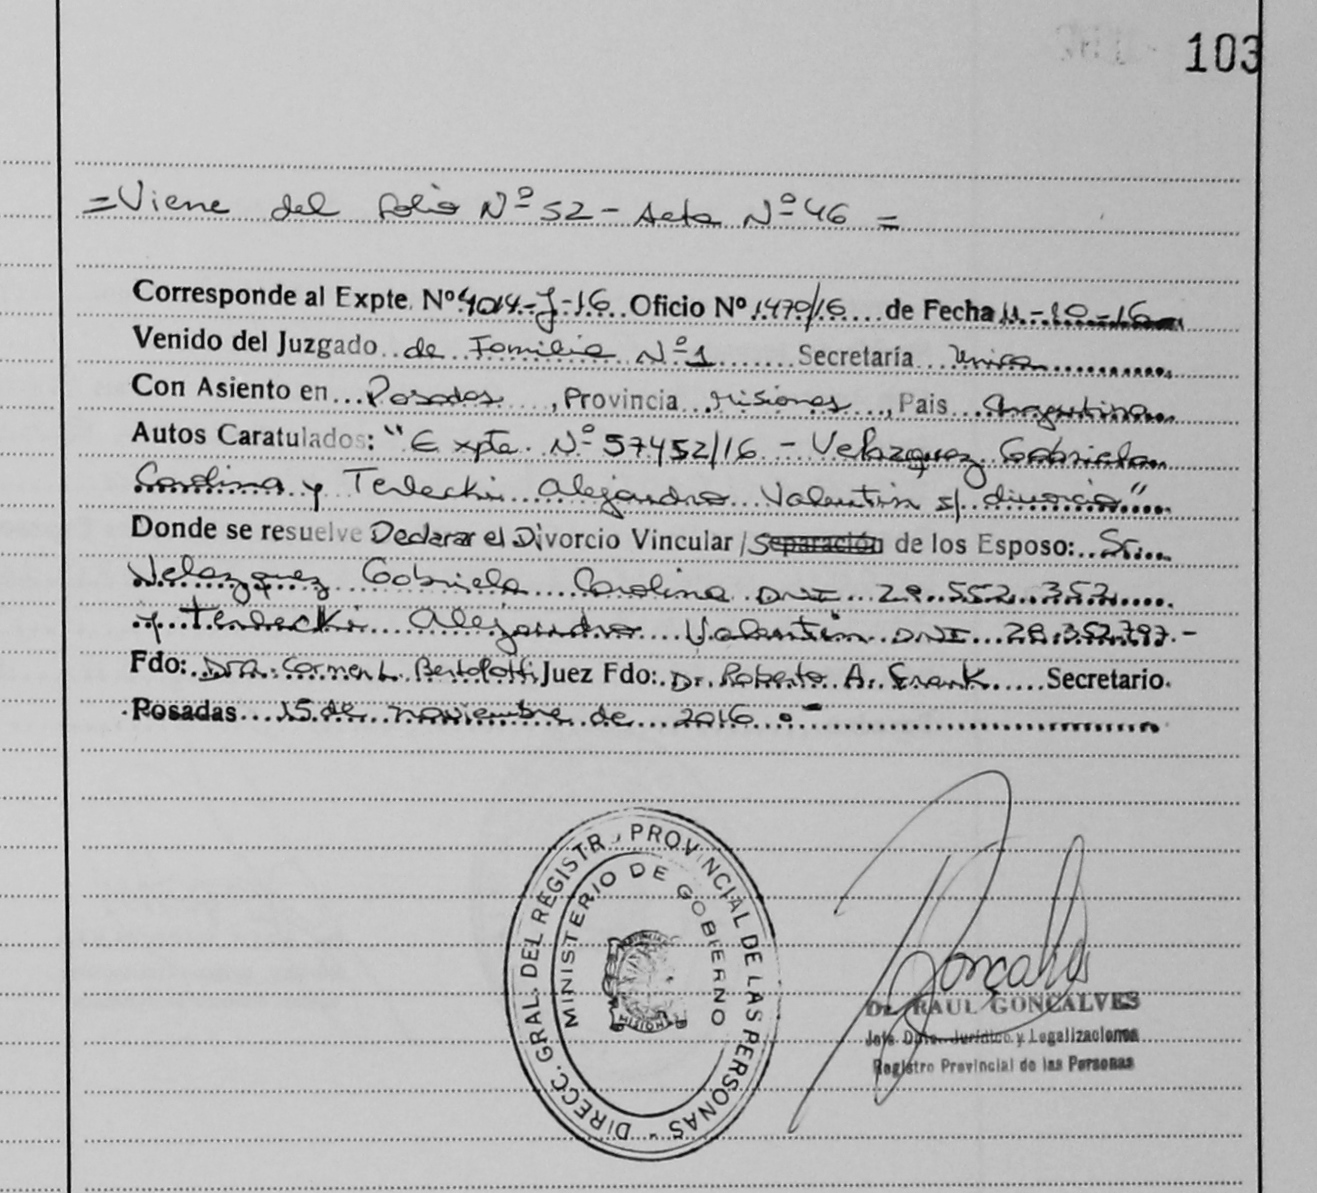 103
=Viene del folio Nº 52 - Acta Nº 46 =
Corresponde al Expte. Nº 4014-J-16 Oficio Nº 1479/16 de Fecha 11-10-16
Venido del Juzgado de Familia Nº 1 Secretaría Unica
Con Asiento en Posadas, Provincia Misiones, Pais Argentina
Autos Caratulados: "Expte. Nº 57452/16 - Velazquez Gabriela
Carolina y Terlecki Alejandro Valentin s/ divorcio"
Donde se resuelve Declarar el Divorcio Vincular / Separación de los Esposo: Sr.
Velazquez Gabriela Carolina DNI 29.552.352
y Terlecki Alejandro Valentin DNI 28.352.797.-
Fdo: Dra. Carmen L. Bertolotti Juez Fdo: Dr. Roberto A. Frank Secretario.
Posadas 15 de noviembre de 2016.-
DIRECC. GRAL. DEL REGISTRO PROVINCIAL DE LAS PERSONAS -
MINISTERIO DE GOBIERNO
MISIONES
Gonçalves
Dr. RAUL GONCALVES
Jefe Dpto. Jurídico y Legalizaciones
Registro Provincial de las Personas